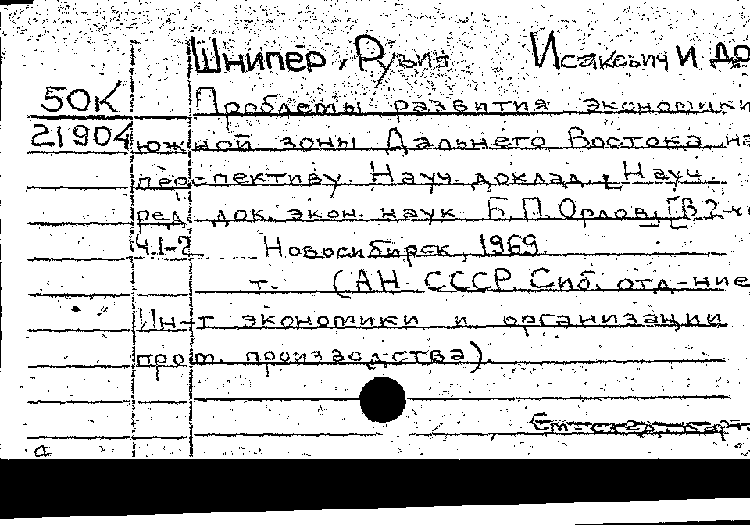 Шнипер, Рувин Исакович и др
50К Проблемы развития экономики
21904 южной зоны Дальнего Востока на
перспективу. Науч. доклад. Науч.
ред. док. экон. наук Б.П. Орлов, [В 2-х
ч.1-2 Новосибирск, 1969
т. (АН СССР. Сиб. отд-ние
Ин-т экономики и организации
пром. производства).
См. след. карт